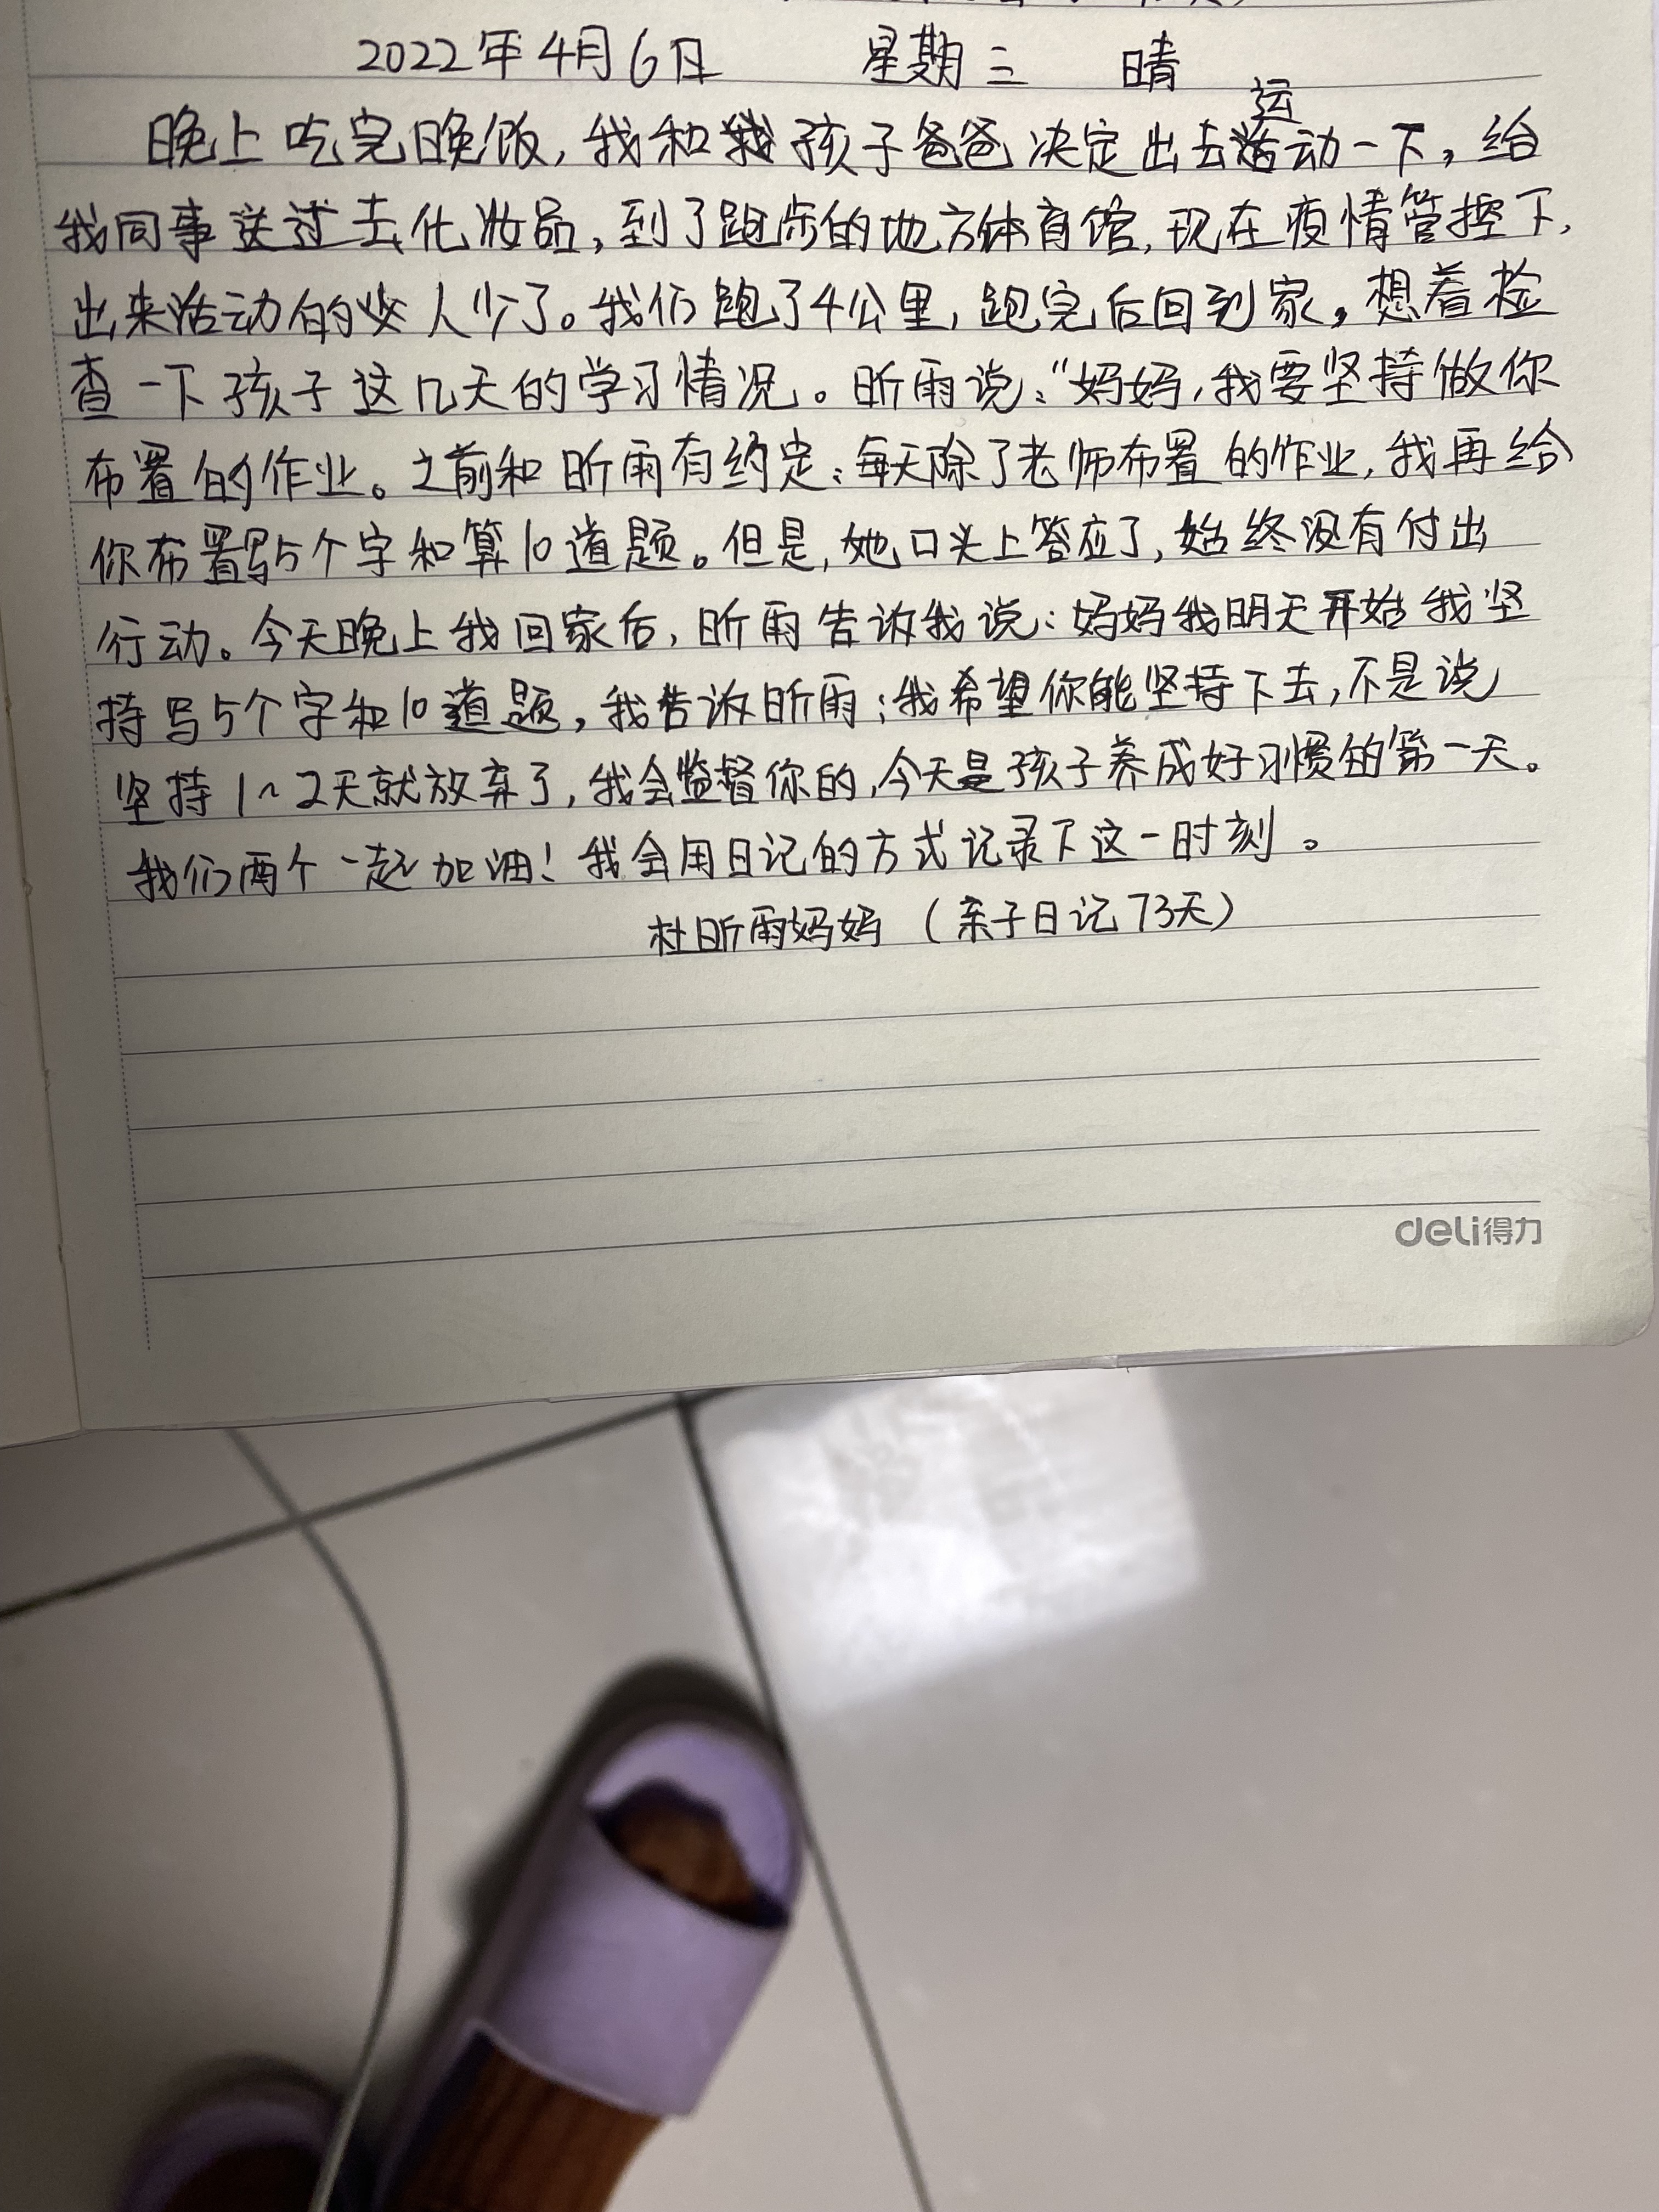 2022年4月6日 星期三 晴
晚上吃完晚饭,我和孩子爸爸决定出去运动一下,给
我同事送过去化妆品,到了跑步的地方体育馆,现在疫情管控下,
出来活动的人少了。我们跑了4公里,跑完后回到家,想着检
查一下孩子这几天的学习情况。昕雨说:“妈妈,我要坚持做你
布置的作业。之前和昕雨有约定:每天除了老师布置的作业,我再给
你布置写5个字和算10道题。但是,她口头上答应了,始终没有付出
行动。今天晚上我回家后,昕雨告诉我说:妈妈我明天开始我坚
持写5个字和10道题,我告诉昕雨:我希望你能坚持下去,不是说
坚持1~2天就放弃了,我会监督你的,今天是孩子养成好习惯的第一天。
我们两个一起加油!我会用日记的方式记录下这一时刻。
杜昕雨妈妈(亲子日记73天)
deli得力